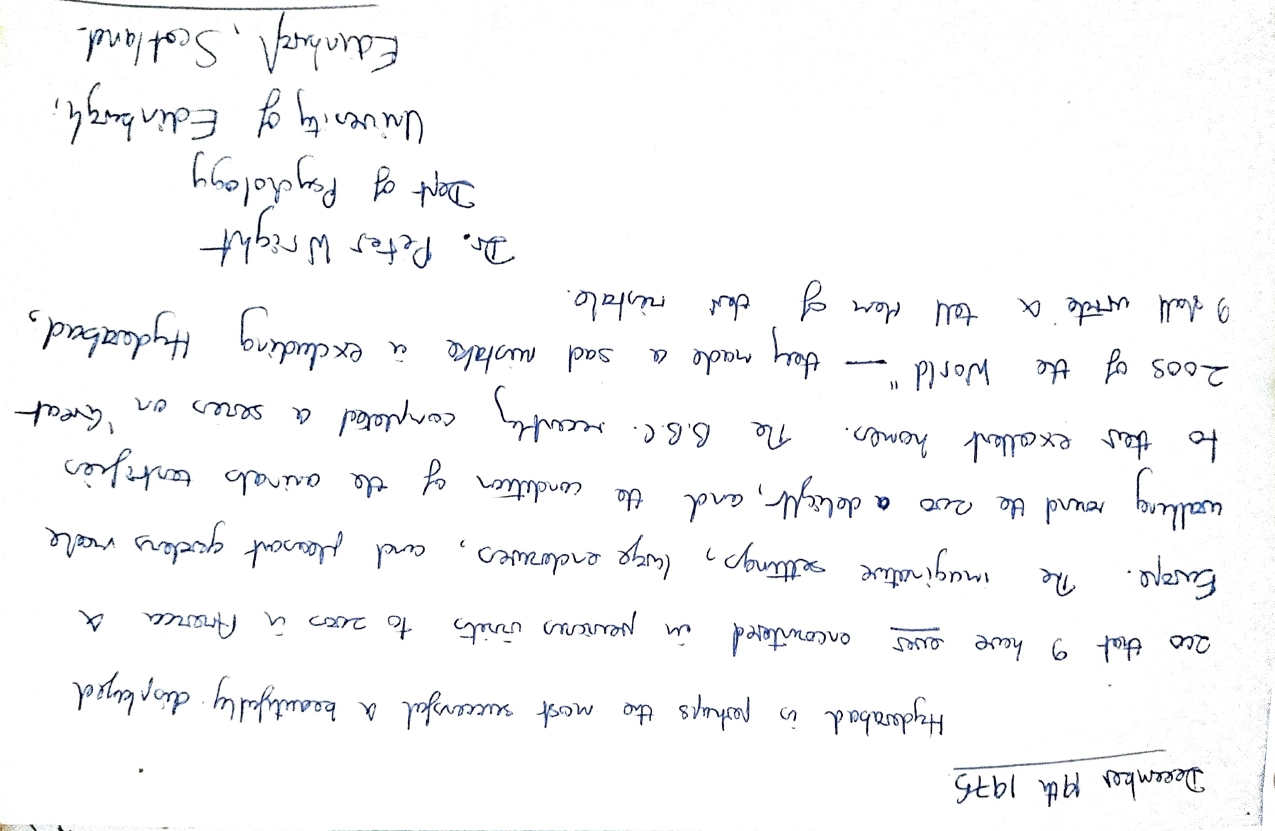 December 19th 1975
Hyderabad is perhaps the most successful & beautifully displayed
zoo that I have ever encountered in previous visits to zoos in America &
Europe. The imaginative settings, large enclosures, and pleasant gardens make
walking round the zoo a delight, and the condition of the animals testifies
to their excellent homes. The B.B.C. recently completed a series on "Great
Zoos of the World" — they made a sad mistake in excluding Hyderabad,
I shall write & tell them of their mistake.
Dr. Peter Wright
Dept of Psychology
University of Edinburgh,
Edinburgh, Scotland.